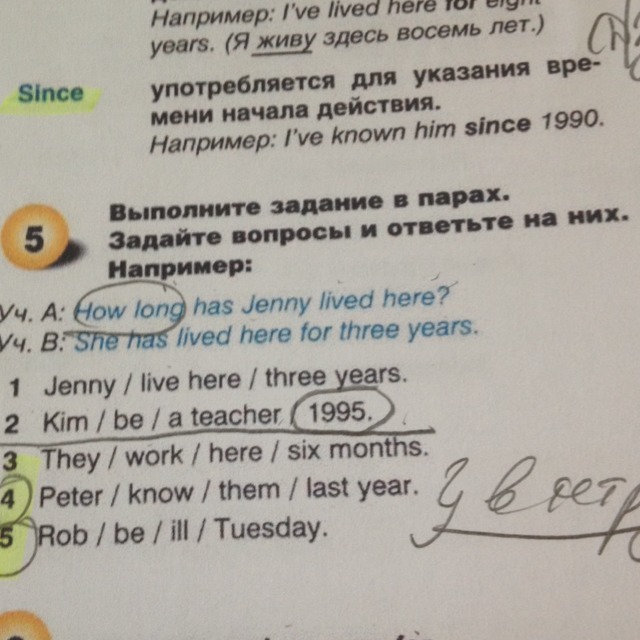 Например: I've lived here for eight
years. (Я живу здесь восемь лет.)
Since
употребляется для указания вре-
мени начала действия.
Например: I've known him since 1990.
5
Выполните задание в парах.
Задайте вопросы и ответьте на них.
Например:
Уч. A: How long has Jenny lived here?
Уч. B: She has lived here for three years.
1 Jenny / live here / three years.
2 Kim / be / a teacher 1995.
3 They / work / here / six months.
4 Peter / know / them / last year.
5 Rob / be / ill / Tuesday.